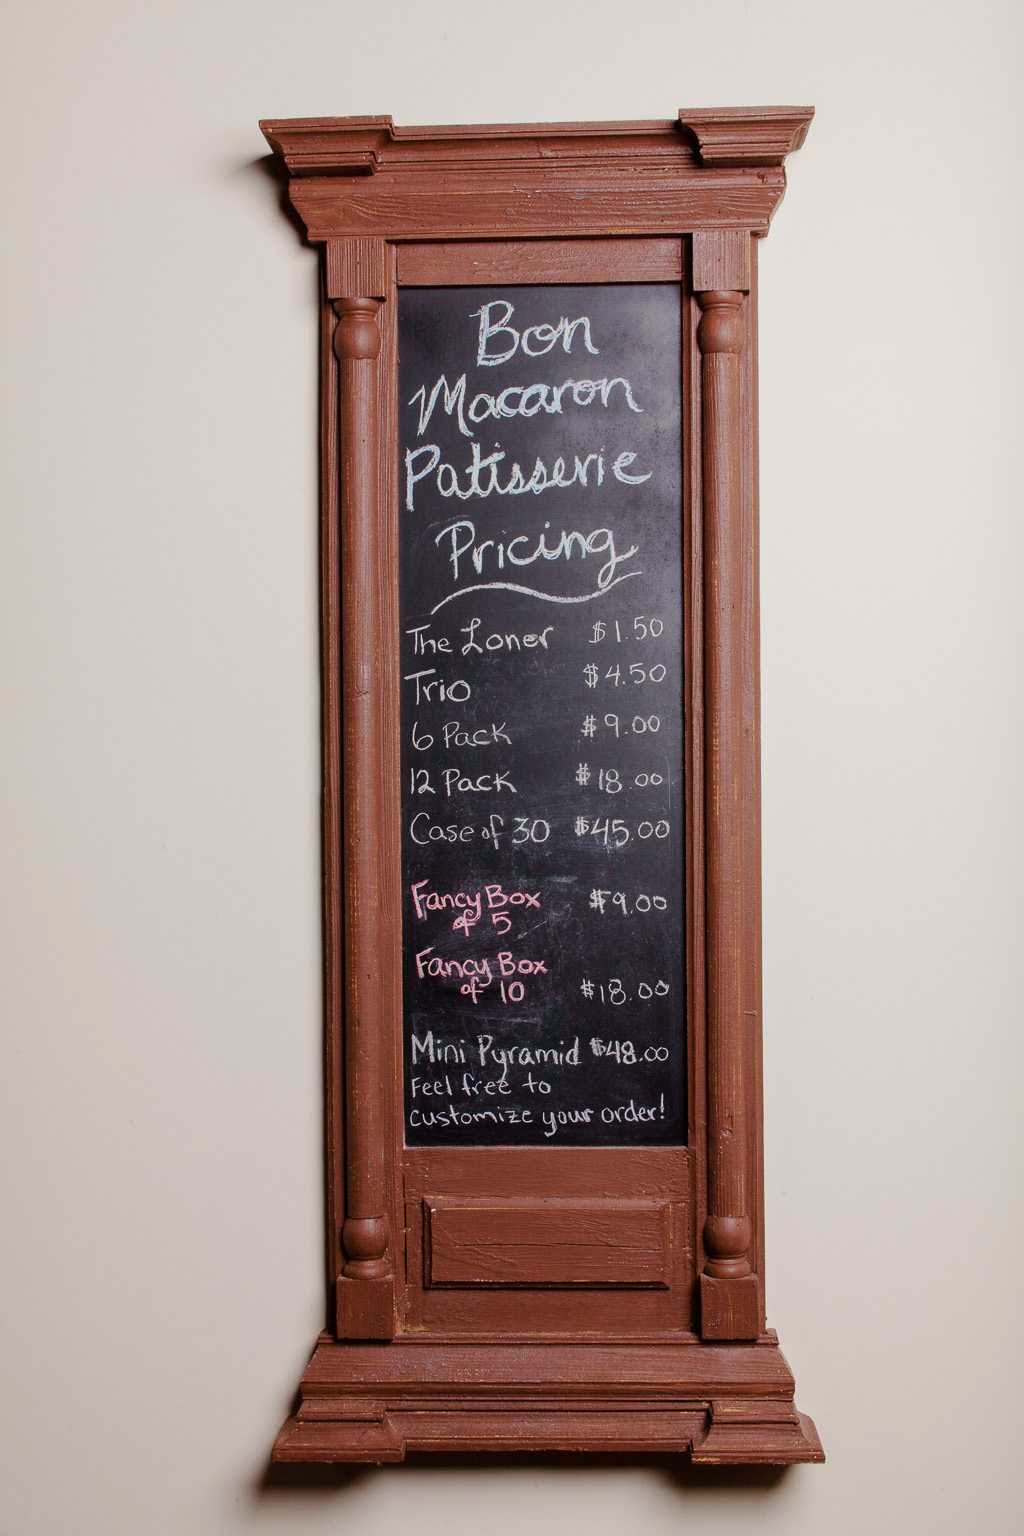 Bon
Macaron
Patisserie
Pricing
The Loner $1.50
Trio $4.50
6 Pack $9.00
12 Pack $18.00
Case of 30 $45.00
Fancy Box $9.00
of 5
Fancy Box
of 10 $18.00
Mini Pyramid $48.00
Feel free to
customize your order!